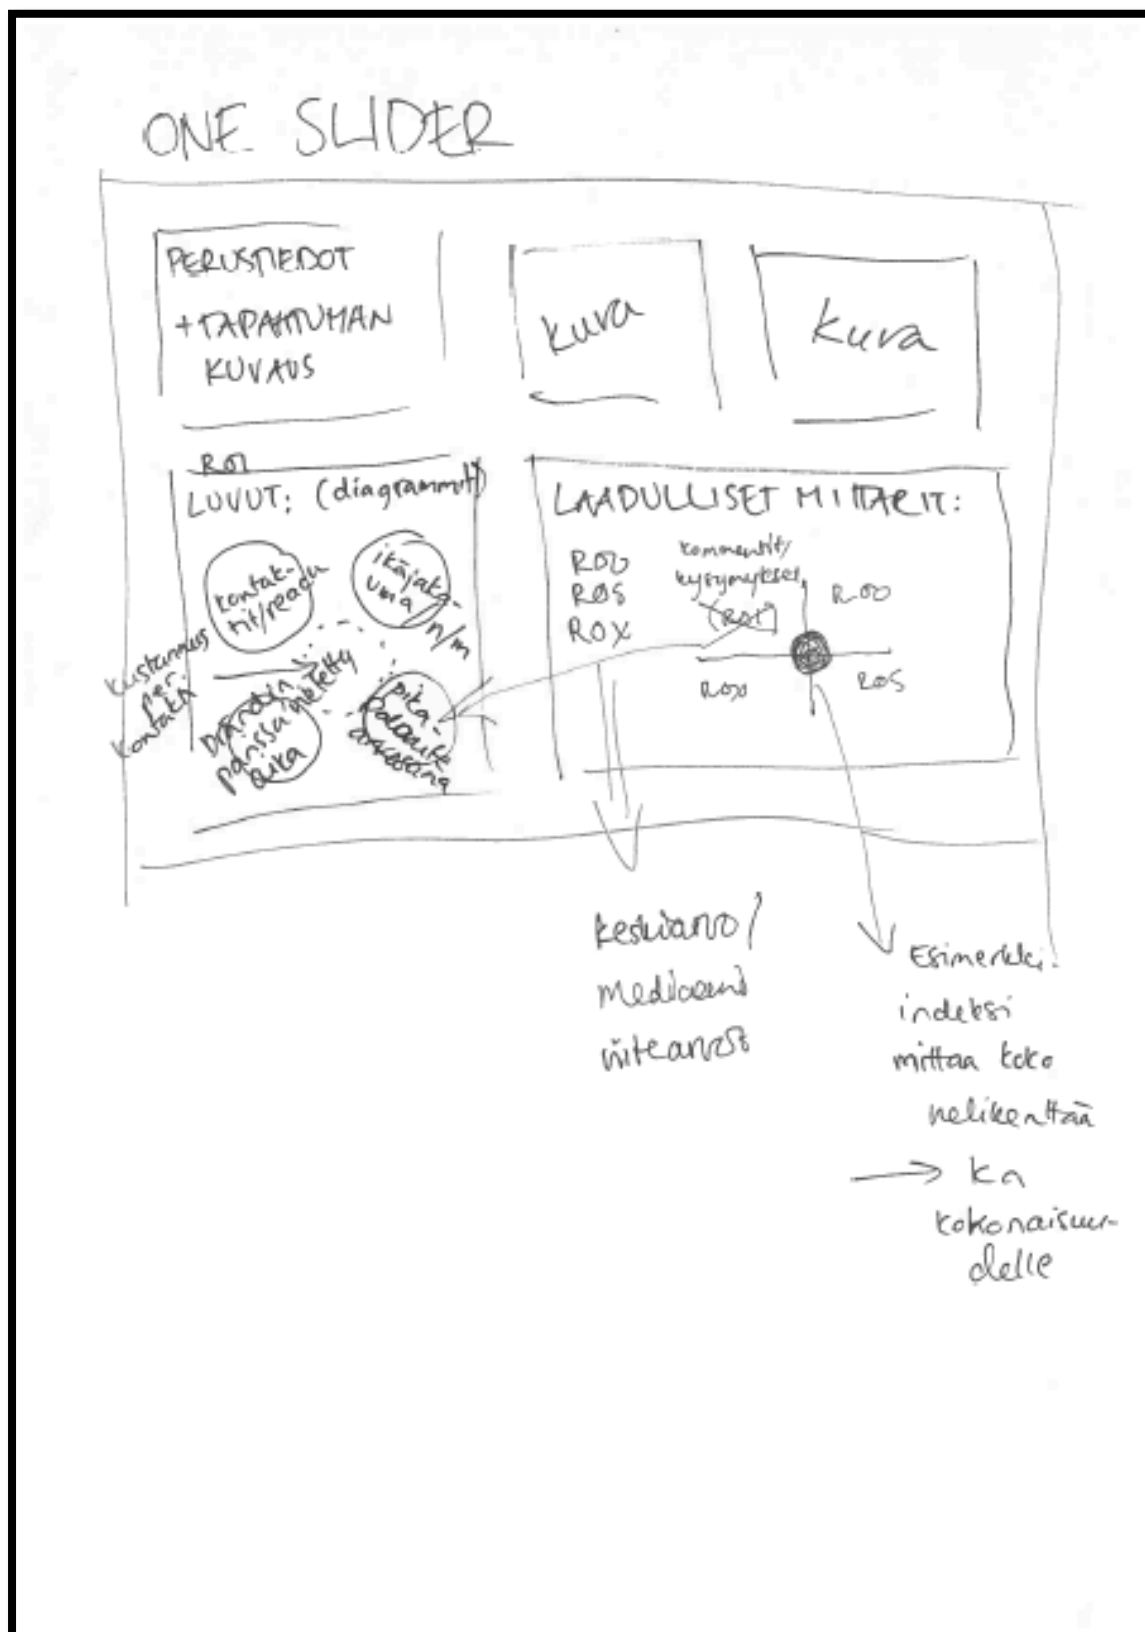 ONE SLIDER
PERUSTIEDOT
+ TAPAHTUMAN
KUVAUS
kuva
kuva
ROI
LUVUT: (diagrammit)
kontak-
tit/readu
ikäjaka-
uma
n/m
kustannus
per.
kontakti
brändin
parissa vietetty
aika
pika-
arvosana
LAADULLISET MITTARIT:
ROO
ROS
ROX
kommentit/
kysymykset
(ROI)
ROO
ROX
ROS
keskiarvo/
mediaani
viitearvot
Esimerkki-
indeksi
mittaa koko
nelikenttää
→ ka
kokonaisuu-
delle